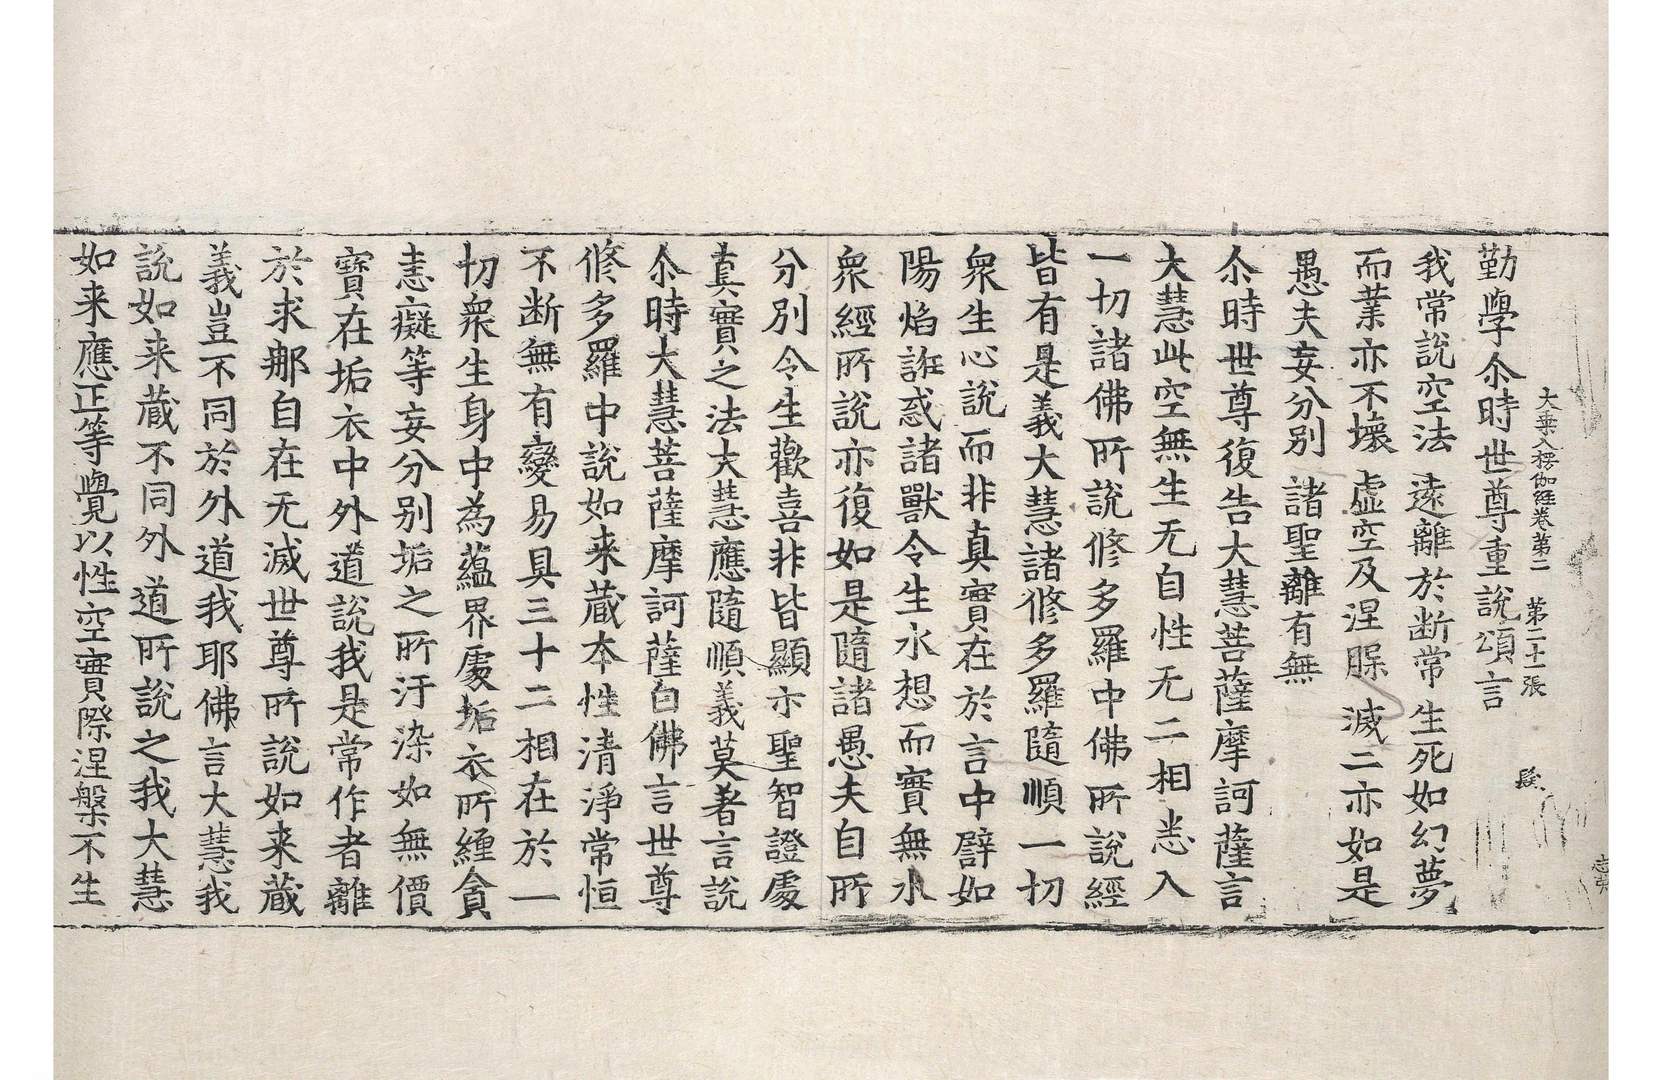 大乗入楞伽経卷第二　第二十一張　髮
勤學尒時世尊重說頌言
我常說空法　遠離於断常　生死如幻夢
而業亦不壞　虛空及涅槃　滅二亦如是
愚夫妄分别　諸聖離有無
尒時世尊復告大慧菩薩摩訶薩言
大慧此空無生无自性无二相悉入
一切諸佛所說修多羅中佛所說經
皆有是義大慧諸修多羅隨順一切
衆生心說而非真實在於言中譬如
陽焰誑惑諸獸令生水想而實無水
衆經所說亦復如是隨諸愚夫自所
分别令生歡喜非皆顯示聖智證處
真實之法大慧應隨順義莫著言說
尒時大慧菩薩摩訶薩白佛言世尊
修多羅中說如来藏本性清淨常恒
不断無有變易具三十二相在於一
切衆生身中為蘊界處垢衣所纏貪
恚癡等妄分别垢之所汙染如無價
寶在垢衣中外道說我是常作者離
於求那自在无滅世尊所說如来藏
義豈不同於外道我耶佛言大慧我
說如来藏不同外道所說之我大慧
如来應正等覺以性空實際涅槃不生